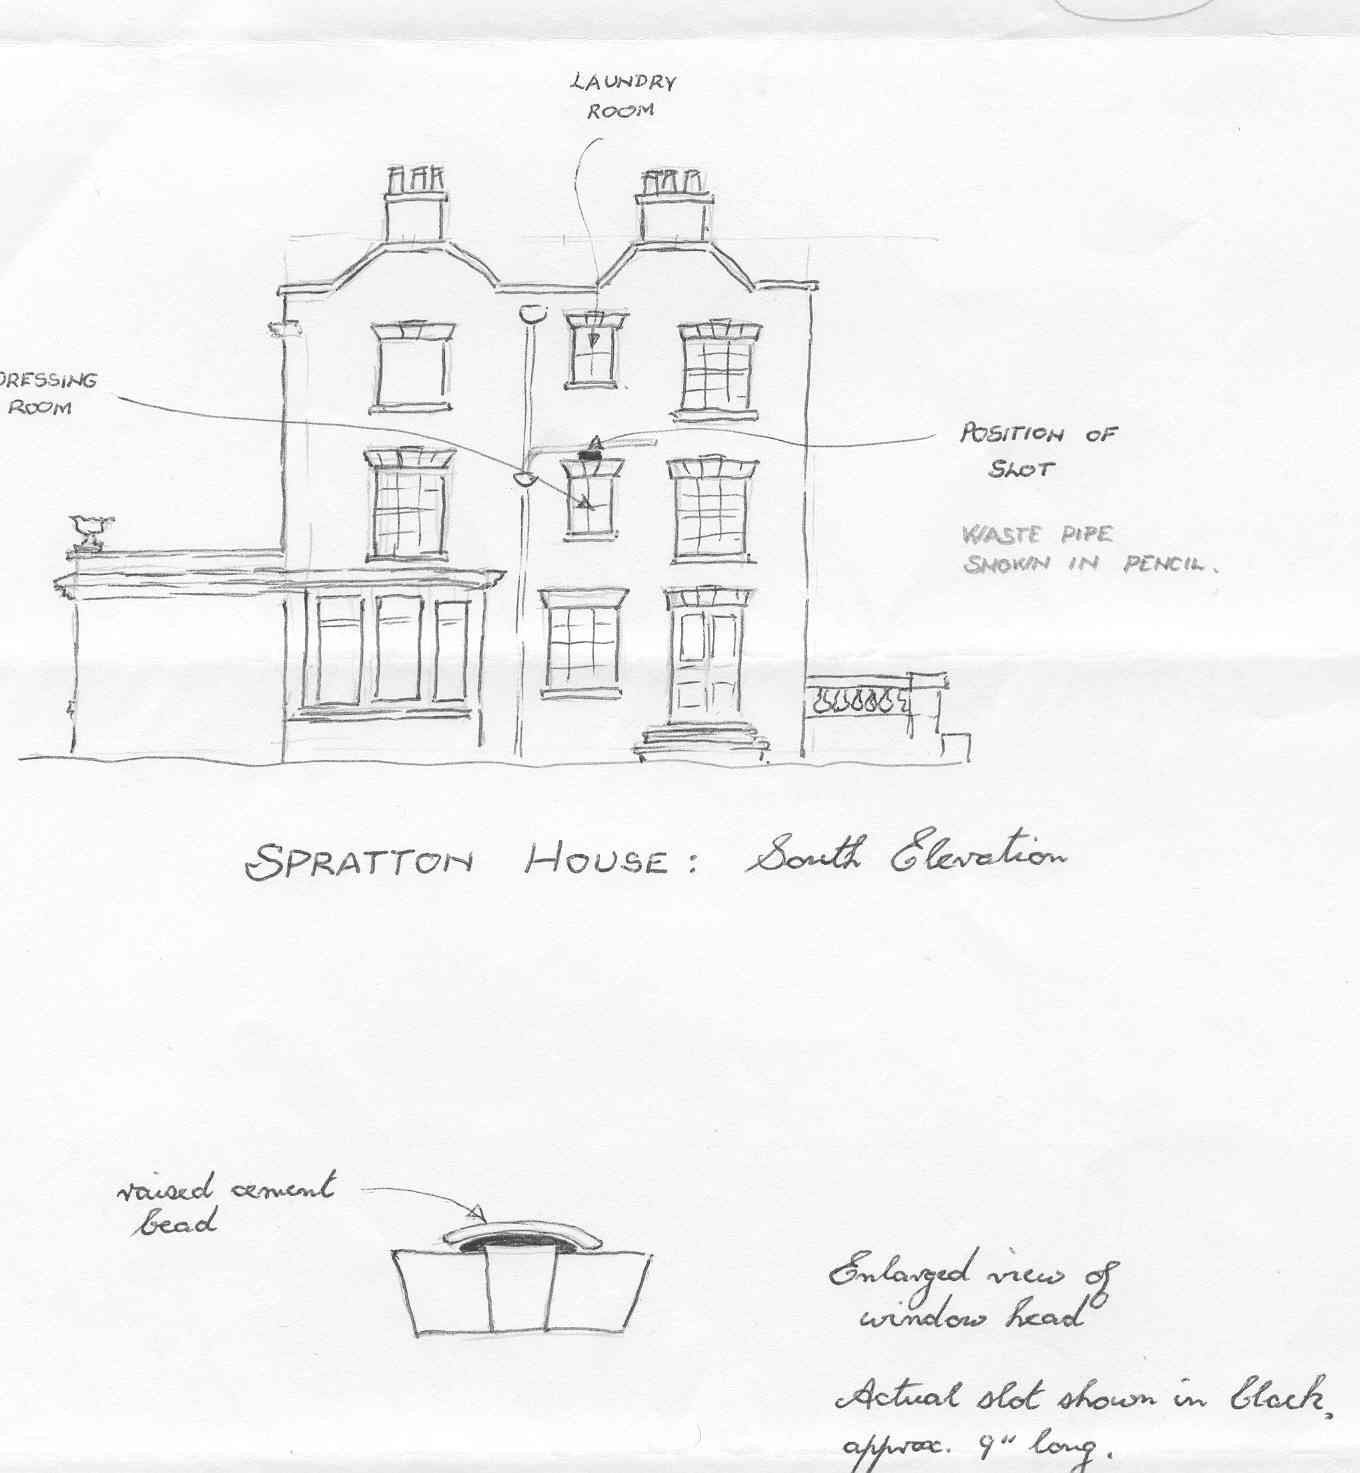 LAUNDRY
ROOM
DRESSING
ROOM
POSITION OF
SLOT
WASTE PIPE
SHOWN IN PENCIL.
SPRATTON HOUSE: South Elevation
raised cement
bead
Enlarged view of
window head
Actual slot shown in black,
approx. 9" long.